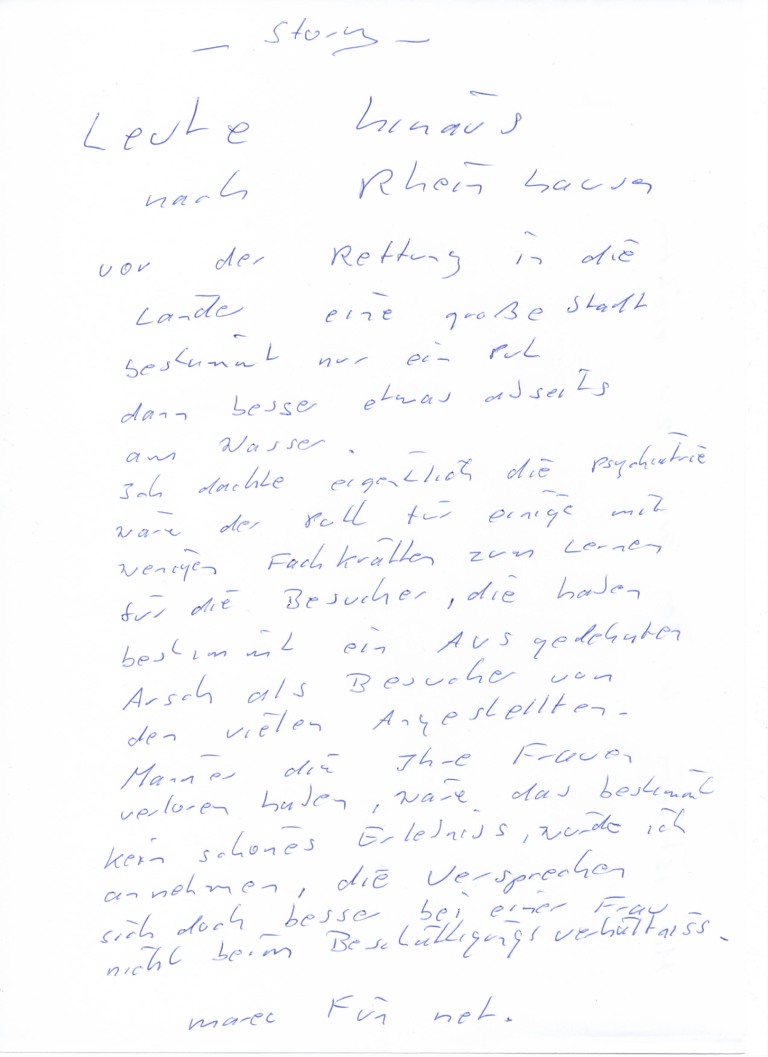 – Story –
Leute hinaus
nach Rheinhausen
vor der Rettung in die
Lande eine große Stadt
bestimmt nur ein
dann besser etwas abseits
am Wasser.
Ich dachte eigentlich die Psychiatrie
wäre der für einige mit
wenigen Fachkräften zum Lernen
für die Besucher, die haben
bestimmt ein Ausgedehnten
Arsch als Besucher von
den vielen Angestellten.
Männer die Ihre Frauen
verloren haben, wäre das bestimmt
kein schönes Erlebniss, würde ich
annehmen, die Versprechen
sich doch besser bei einer Frau
nicht beim Beschäftigungsverhältniss.
marec Fün net.